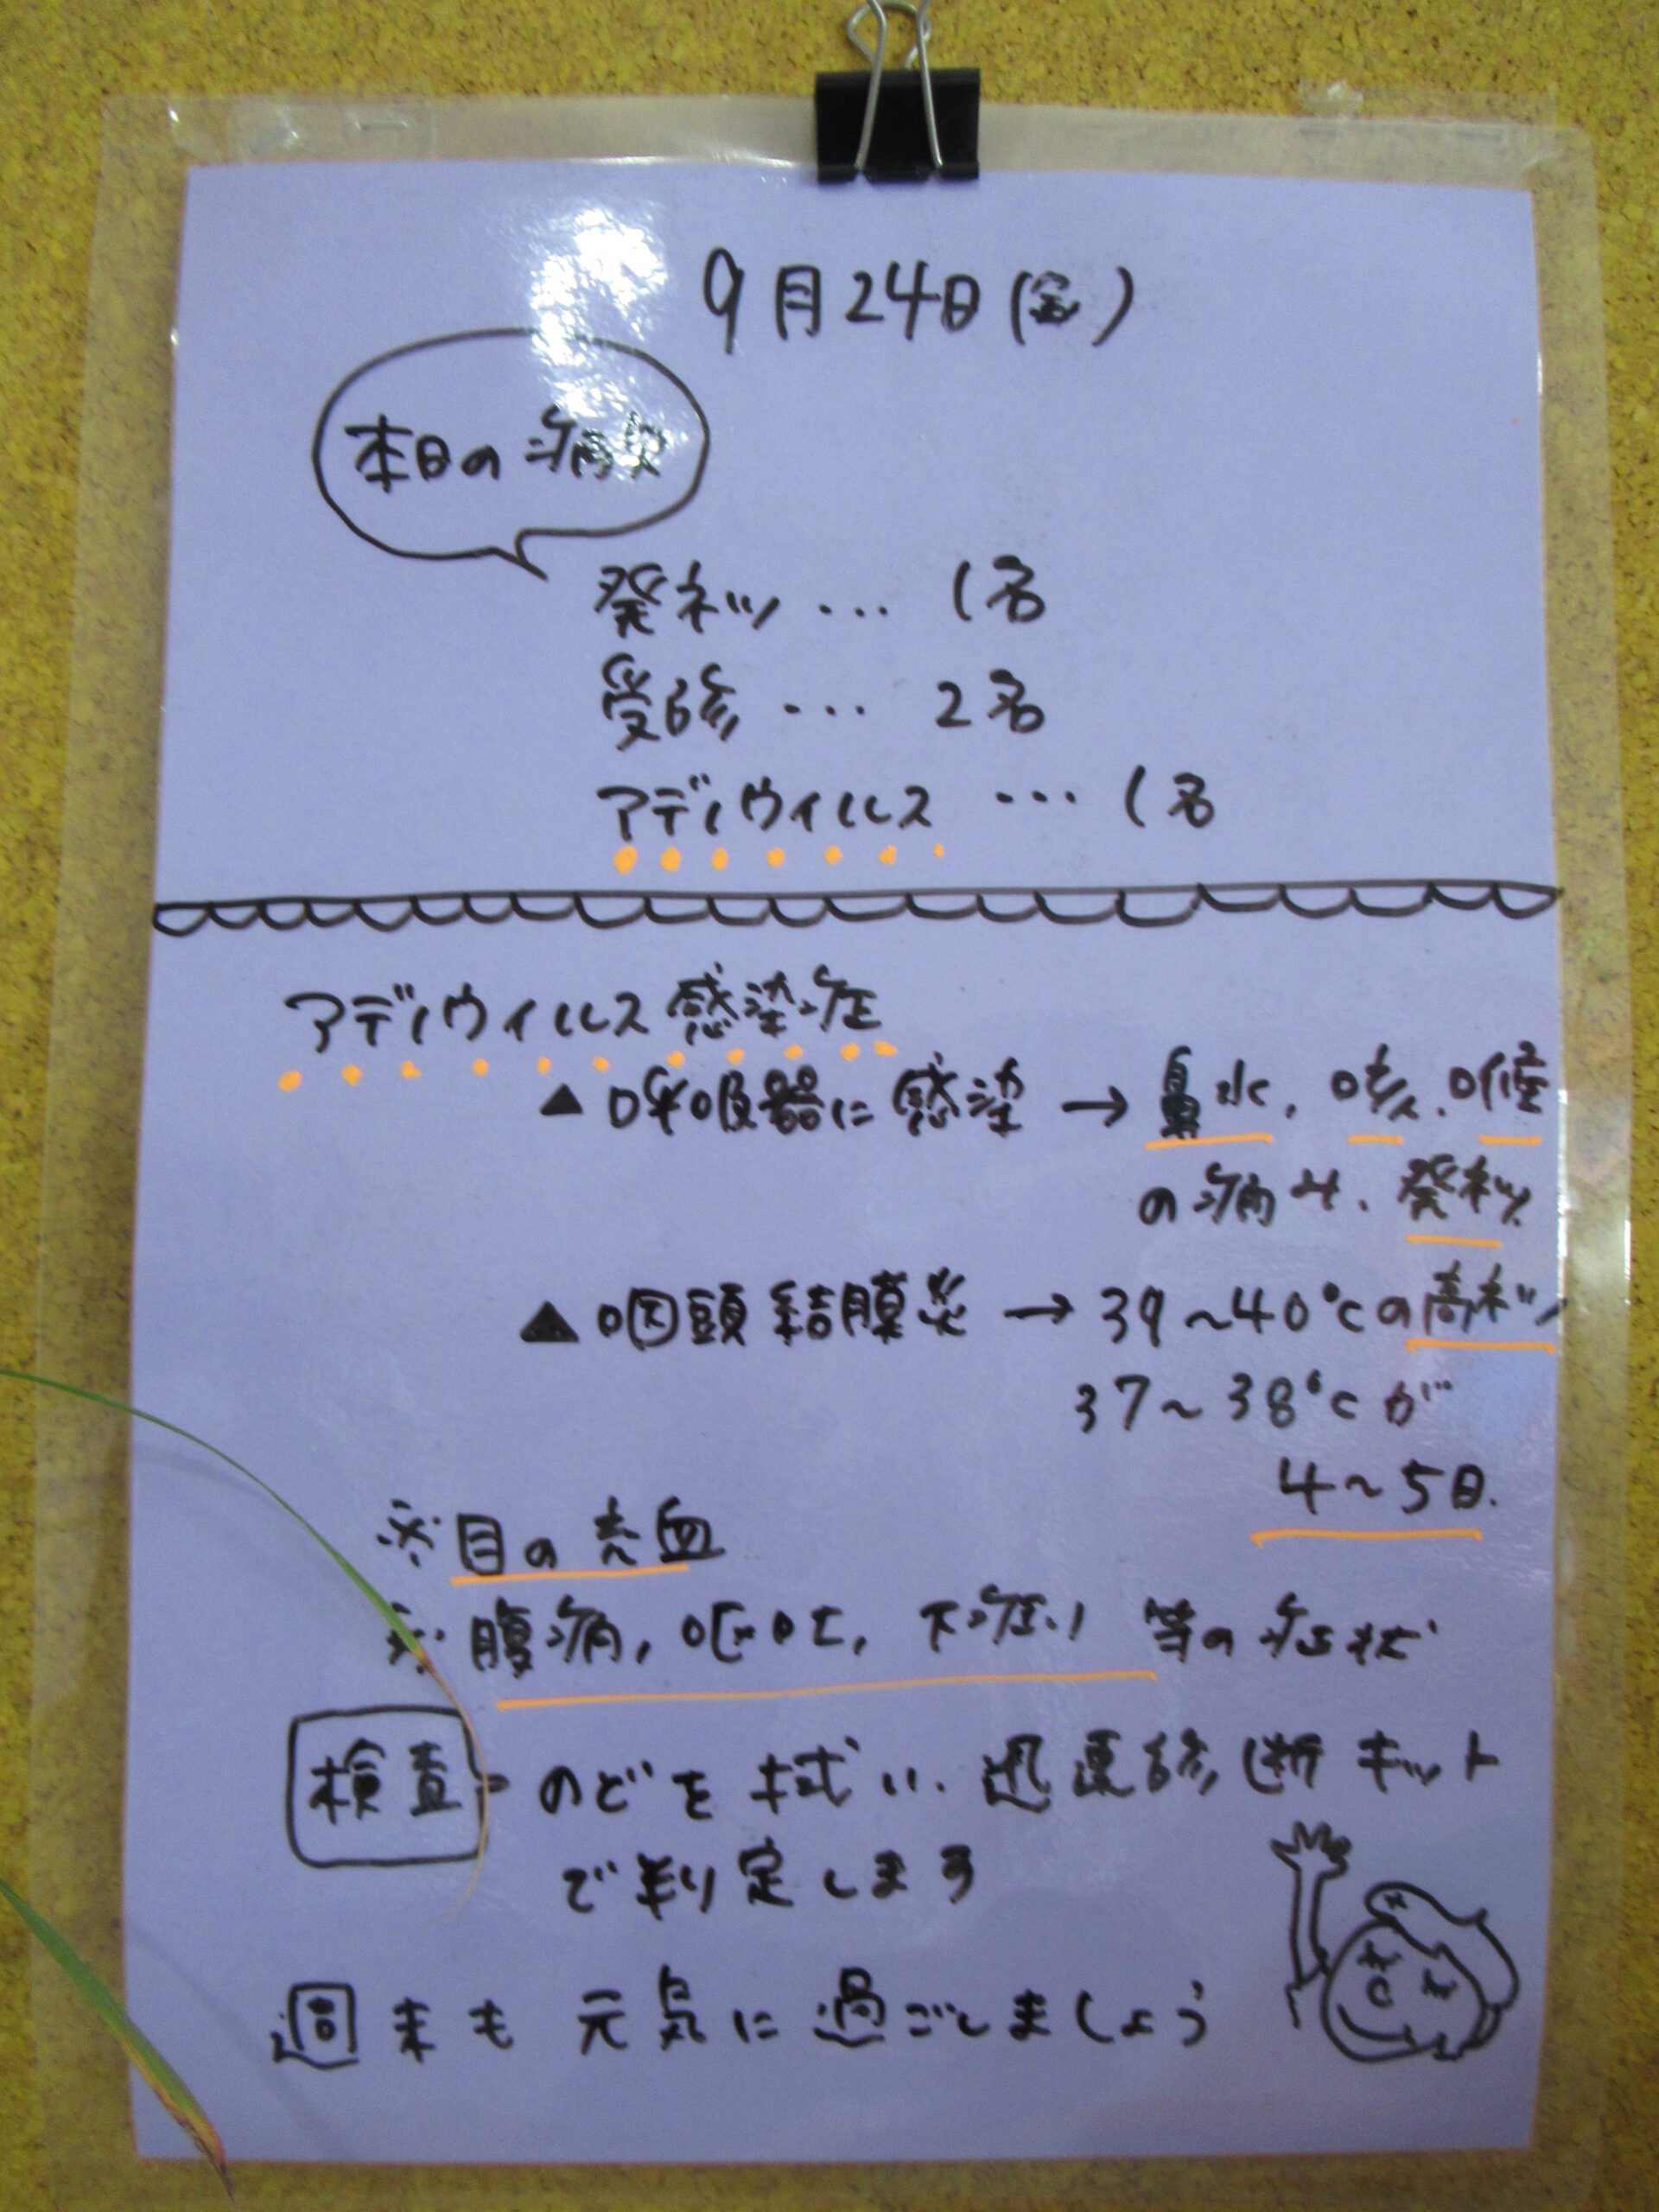 9月24日(金)
本日の病欠
発ネツ … 1名
受診 … 2名
アデノウィルス … 1名
アデノウィルス感染症
▲呼吸器に感染 → 鼻水、咳、咽喉
の痛み、発ネツ
▲咽頭結膜炎 → 39~40℃の高ネツ
37~38℃が
4~5日.
※目の充血
※腹痛,嘔吐,下痢 等の症状
検査 のどを拭い、迅速診断キット
で判定します
週末も元気に過ごしましょう